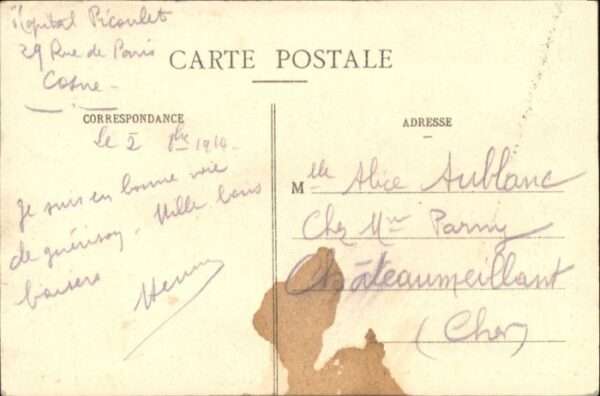 Hopital Picoulet
29 Rue de Paris
Cosne
CARTE POSTALE
CORRESPONDANCE
ADRESSE
Le 2 1914
Je suis en bonne voie
de guérison. Mille bons
baisers
Henri
Mlle Alice Aublanc
Chez Mme Parny
Châteaumeillant
(Cher)